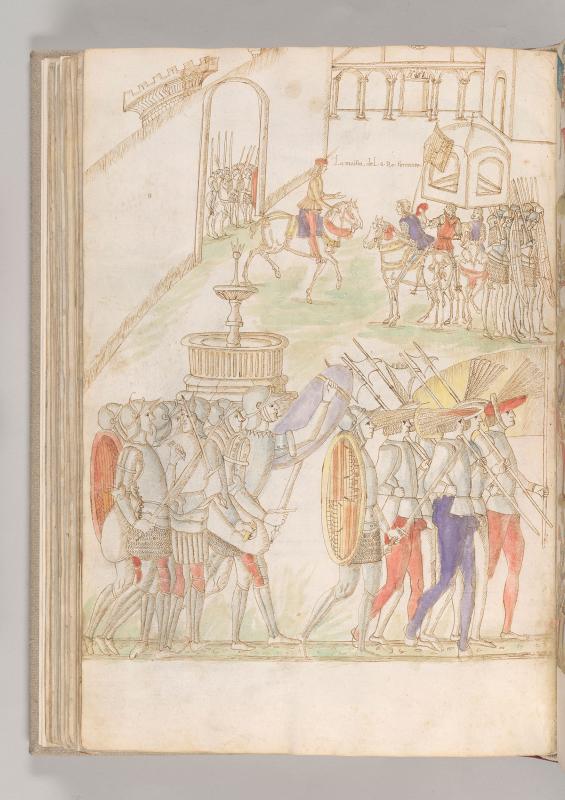 La maista de L S Re ferrante